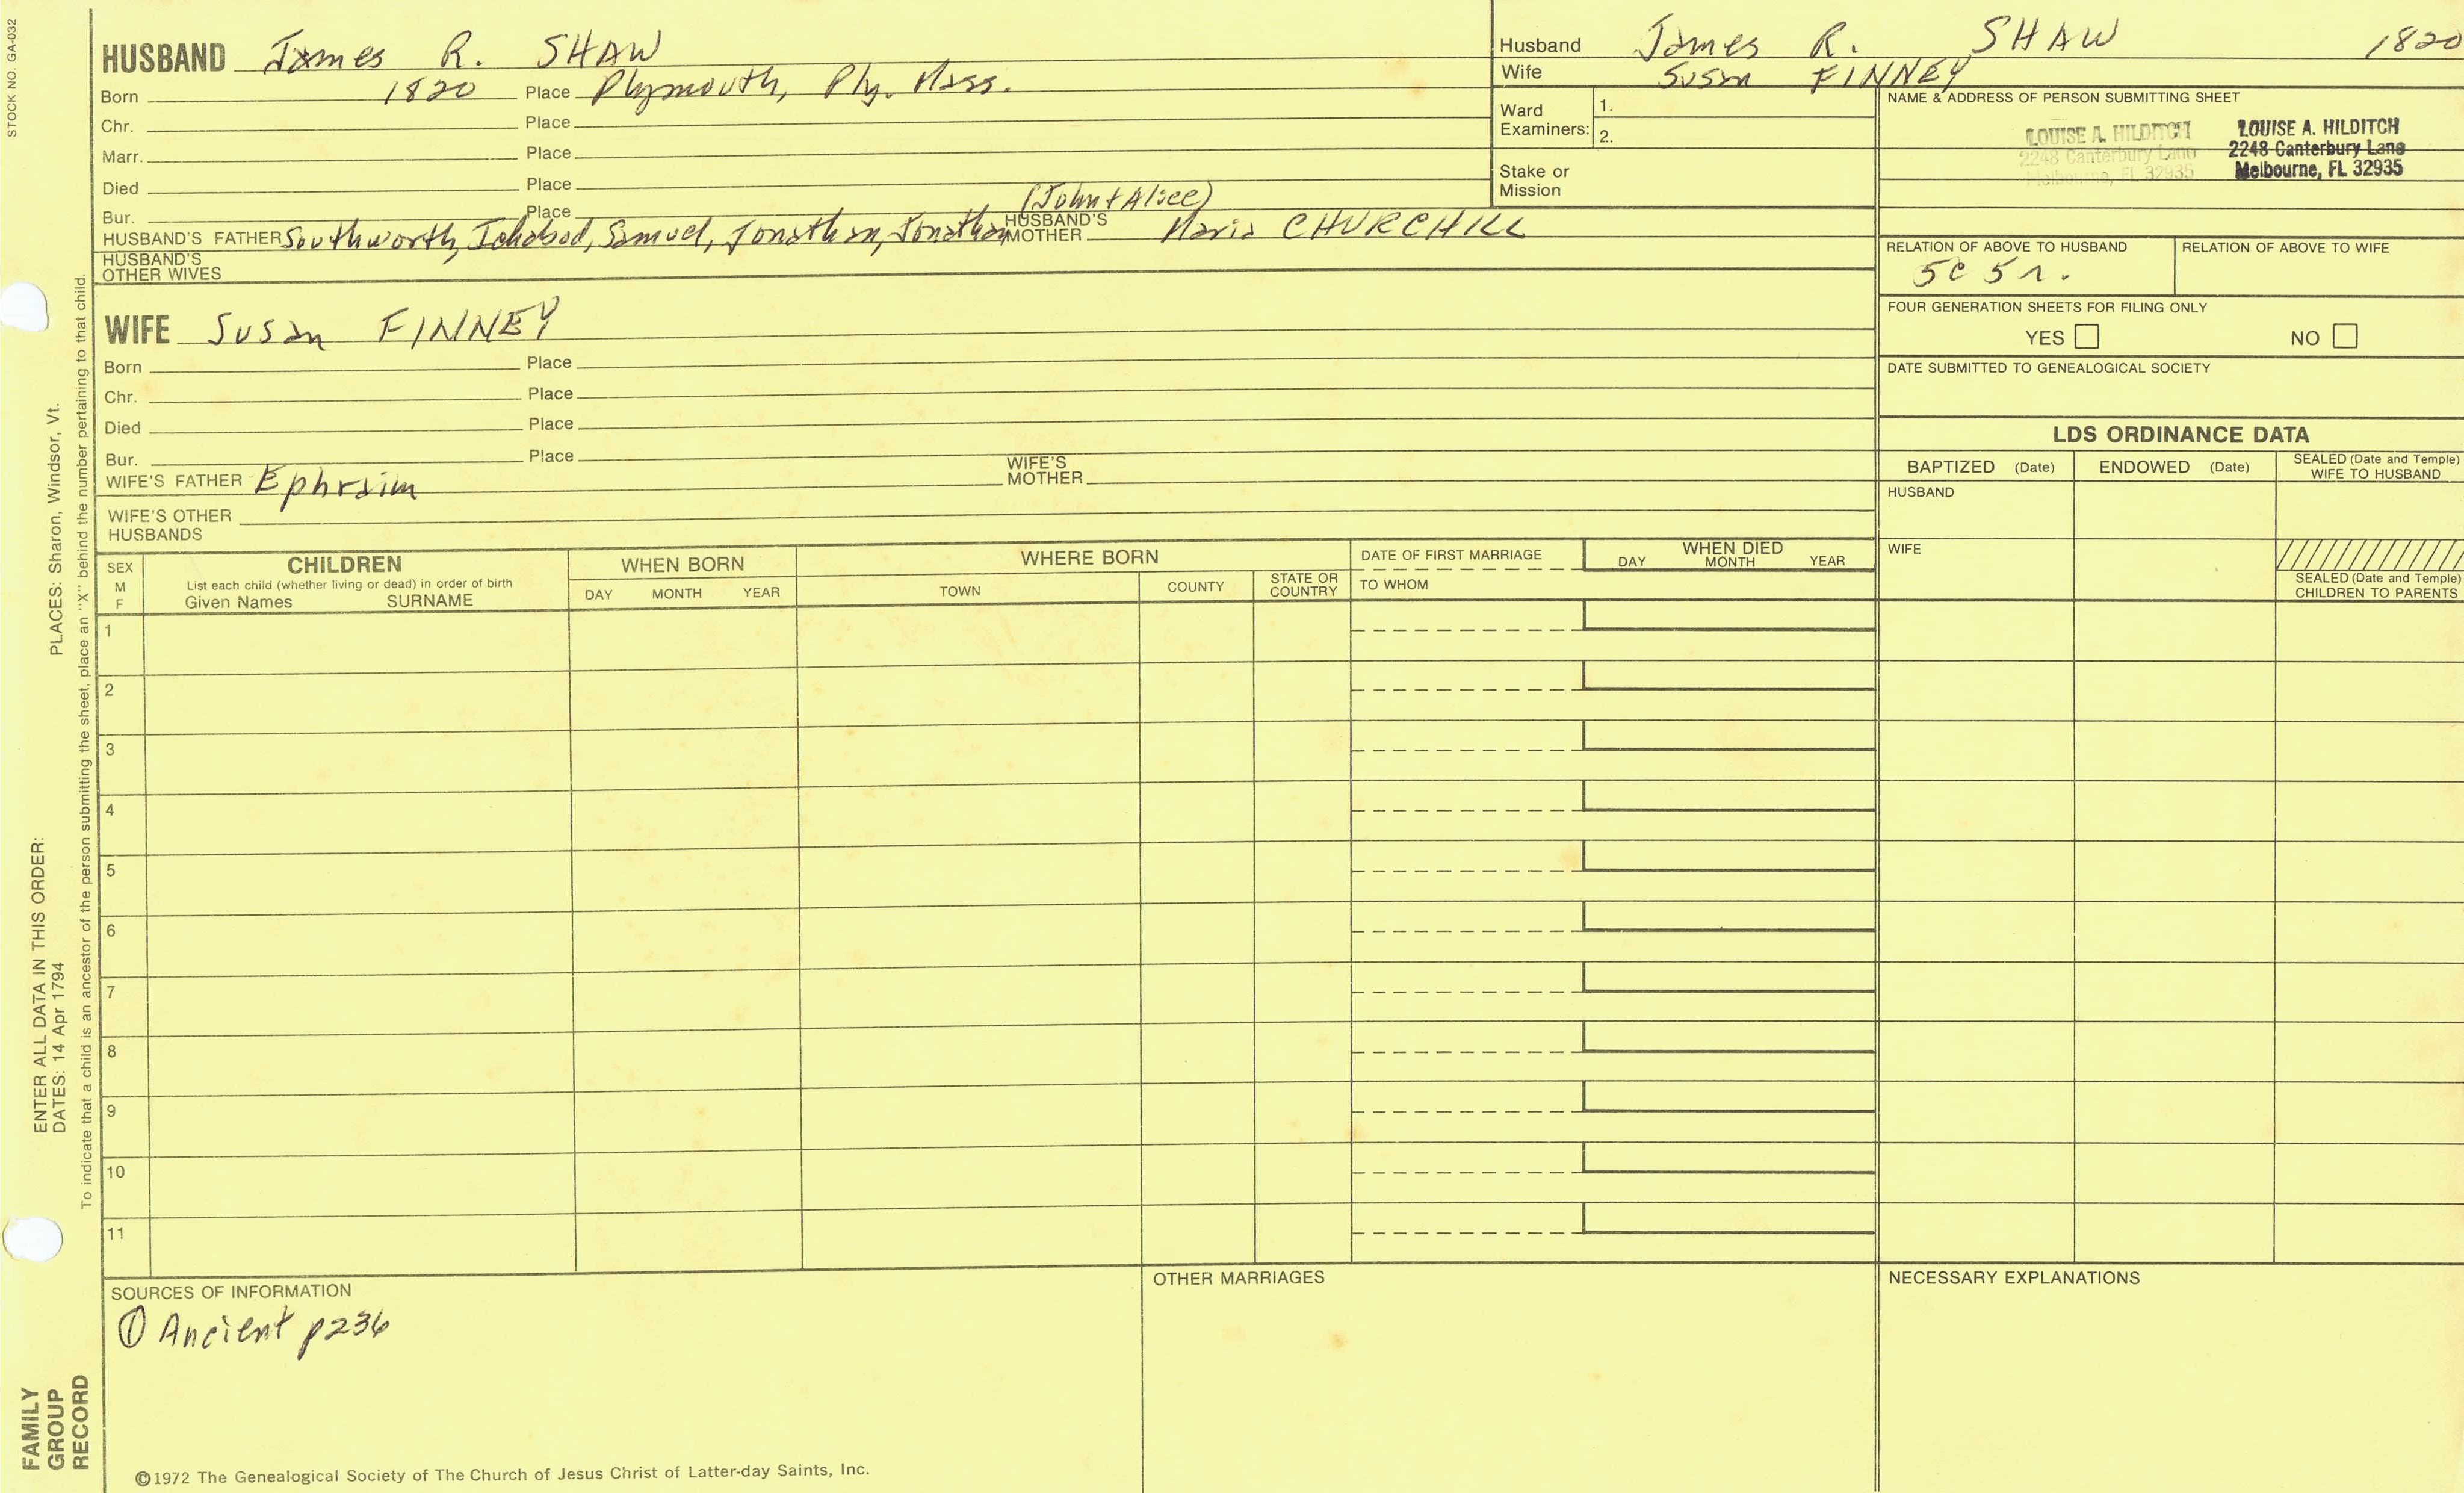 STOCK NO. GA-032
HUSBAND James R. SHAW
Born 1820 Place Plymouth, Ply. Mass.
Chr. Place
Marr. Place
Died Place
Bur. Place (John + Alice)
HUSBAND'S FATHER Southworth, Ichabod, Samuel, Jonathan, Jonathan HUSBAND'S MOTHER Maria CHURCHILL
HUSBAND'S OTHER WIVES
WIFE Susan FINNEY
Born Place
Chr. Place
Died Place
Bur. Place
WIFE'S FATHER Ephraim WIFE'S MOTHER
WIFE'S OTHER HUSBANDS
Husband James R. SHAW 1820
Wife Susan FINNEY
Ward Examiners: 1.
2.
Stake or Mission
NAME & ADDRESS OF PERSON SUBMITTING SHEET
LOUISE A. HILDITCH
2248 Canterbury Lane
Melbourne, FL 32935
LOUISE A. HILDITCH
2248 Canterbury Lane
Melbourne, FL 32935
RELATION OF ABOVE TO HUSBAND
5C 5r.
RELATION OF ABOVE TO WIFE
FOUR GENERATION SHEETS FOR FILING ONLY
YES NO
DATE SUBMITTED TO GENEALOGICAL SOCIETY
LDS ORDINANCE DATA
BAPTIZED (Date) ENDOWED (Date) SEALED (Date and Temple) WIFE TO HUSBAND
HUSBAND
WIFE
SEALED (Date and Temple) CHILDREN TO PARENTS
SEX
M
F
CHILDREN
List each child (whether living or dead) in order of birth
Given Names SURNAME
WHEN BORN
DAY MONTH YEAR
WHERE BORN
TOWN COUNTY STATE OR COUNTRY
DATE OF FIRST MARRIAGE
TO WHOM
WHEN DIED
DAY MONTH YEAR
1
2
3
4
5
6
7
8
9
10
11
SOURCES OF INFORMATION
① Ancient p236
OTHER MARRIAGES
NECESSARY EXPLANATIONS
©1972 The Genealogical Society of The Church of Jesus Christ of Latter-day Saints, Inc.
ENTER ALL DATA IN THIS ORDER:
DATES: 14 Apr 1794
PLACES: Sharon, Windsor, Vt.
To indicate that a child is an ancestor of the person submitting the sheet, place an "X" behind the number pertaining to that child.
FAMILY
GROUP
RECORD